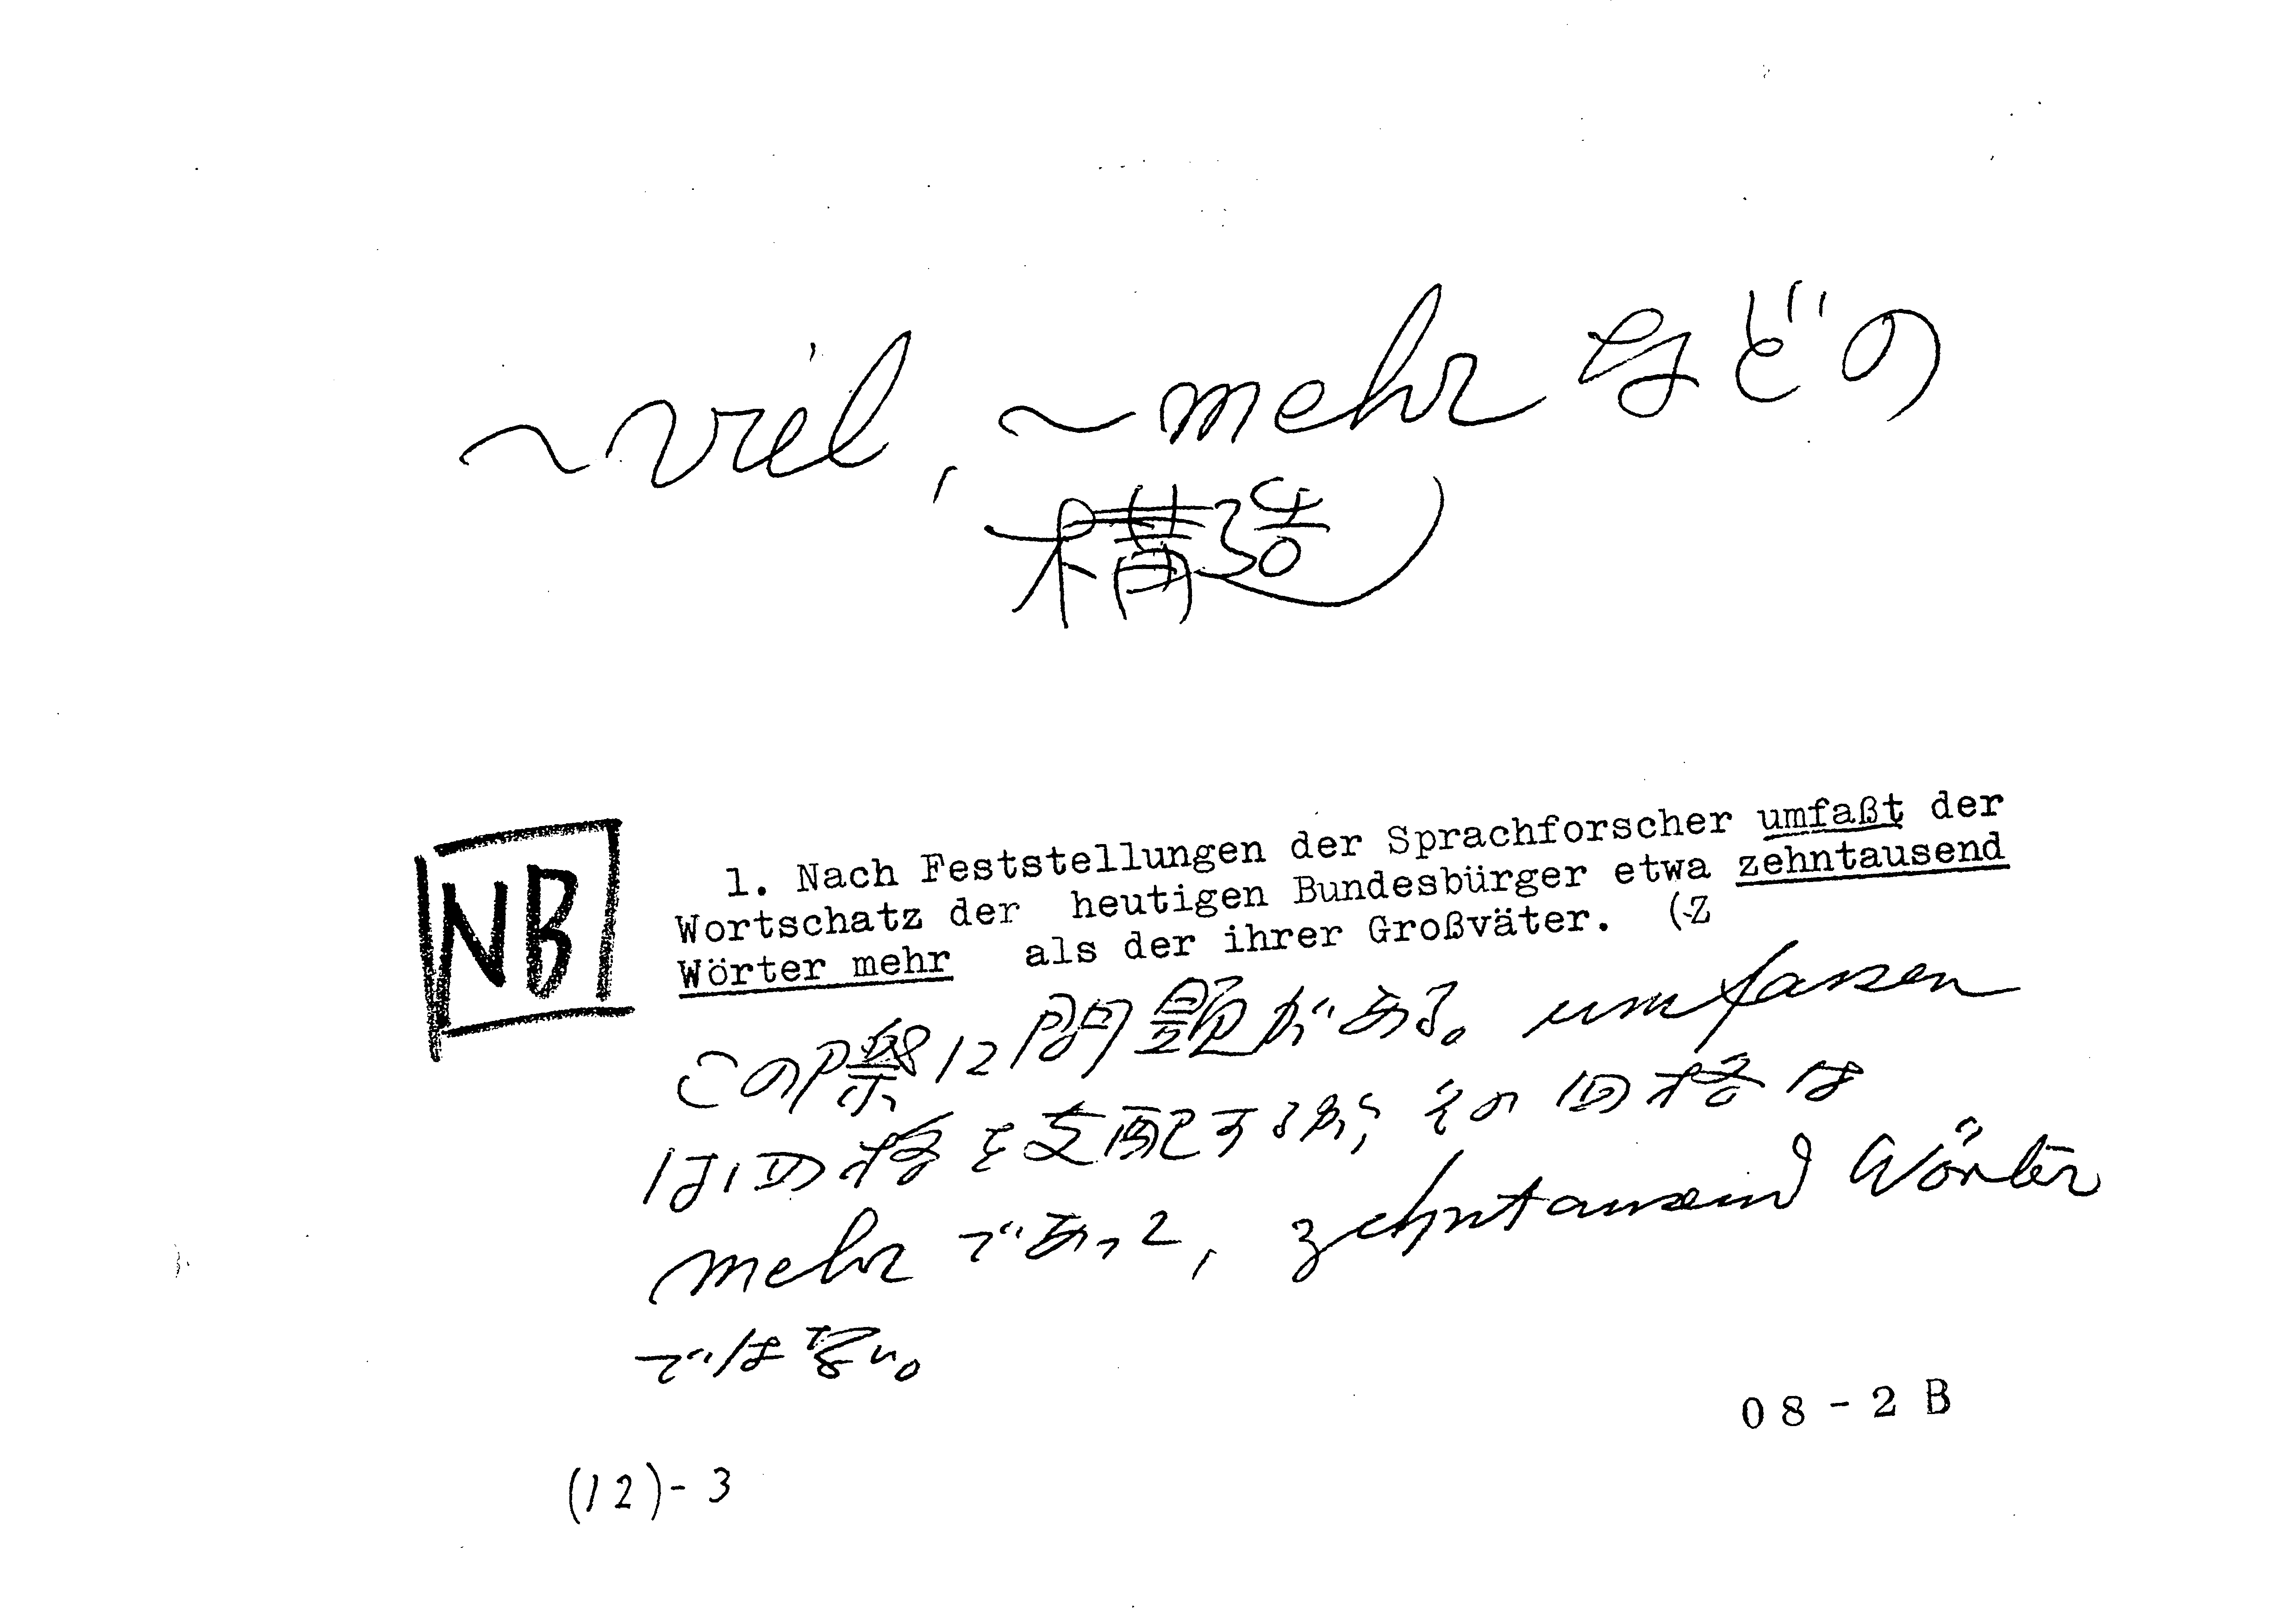 ~viel, ~mehrなどの
構造
NB
1. Nach Feststellungen der Sprachforscher umfaßt der
Wortschatz der heutigen Bundesbürger etwa zehntausend
Wörter mehr als der ihrer Großväter. (Z
この際に問題がある。umfassen
は四格を支配するが、その四格は
mehr であって, zehntausend Wörter
ではない。
08-2B
(12)-3